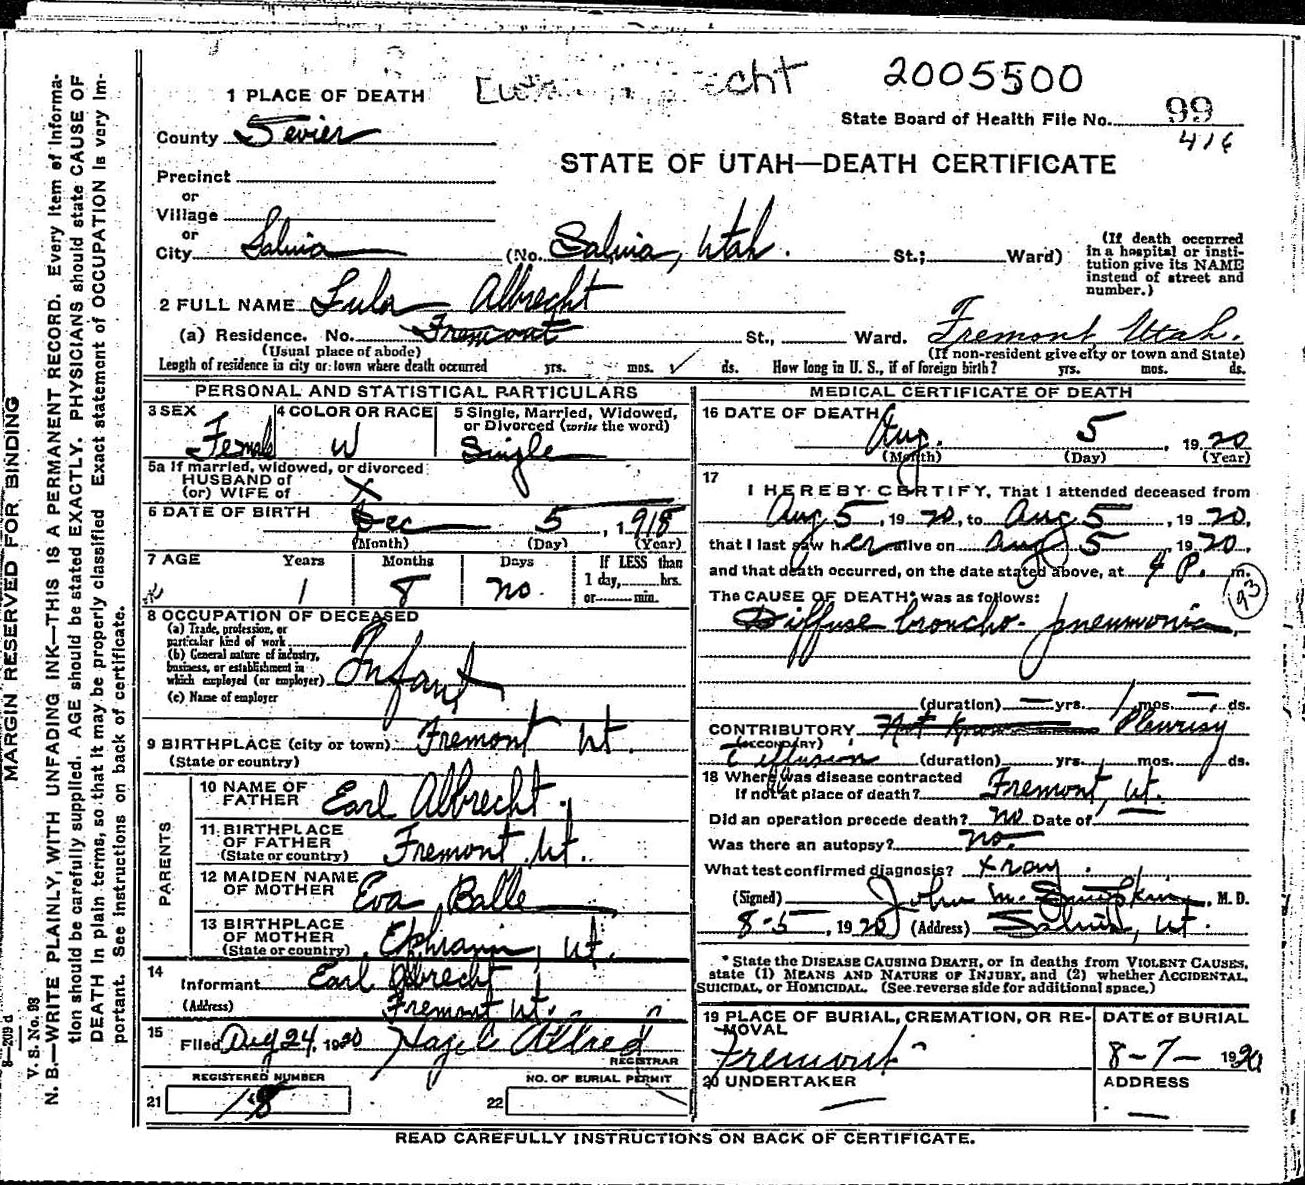 2005500
1 PLACE OF DEATH
State Board of Health File No. 99
416
County Sevier
STATE OF UTAH—DEATH CERTIFICATE
Precinct
or
Village
or
City Salina (No. Salina, Utah. St.; Ward) (If death occurred in a hospital or institution give its NAME instead of street and number.)
2 FULL NAME Lula Albrecht
(a) Residence. No. Fremont St., Ward. Fremont Utah.
(Usual place of abode) (If non-resident give city or town and State)
Length of residence in city or town where death occurred yrs. mos. ds. How long in U. S., if of foreign birth? yrs. mos. ds.
PERSONAL AND STATISTICAL PARTICULARS
3 SEX 4 COLOR OR RACE 5 Single, Married, Widowed, or Divorced (write the word)
Female W Single
5a If married, widowed, or divorced
HUSBAND of
(or) WIFE of
6 DATE OF BIRTH Dec 5, 1918
(Month) (Day) (Year)
7 AGE Years Months Days If LESS than
1 8 no. 1 day, hrs.
or min.
8 OCCUPATION OF DECEASED
(a) Trade, profession, or
particular kind of work
(b) General nature of industry,
business, or establishment in
which employed (or employer) Infant
(c) Name of employer
9 BIRTHPLACE (city or town) Fremont Ut.
(State or country)
PARENTS
10 NAME OF
FATHER Earl Albrecht.
11 BIRTHPLACE
OF FATHER
(State or country) Fremont Ut.
12 MAIDEN NAME
OF MOTHER Eva Balle
13 BIRTHPLACE
OF MOTHER
(State or country) Ephraim, Ut.
14 Informant Earl Albrecht
(Address) Fremont Ut.
15 Filed Aug 24, 1920 Hazel Allred
REGISTRAR
REGISTERED NUMBER NO. OF BURIAL PERMIT
21 18 22
MEDICAL CERTIFICATE OF DEATH
16 DATE OF DEATH
Aug. 5, 1920
(Month) (Day) (Year)
17
I HEREBY CERTIFY, That I attended deceased from
Aug 5, 1920, to Aug 5, 1920,
that I last saw her alive on Aug 5, 1920,
and that death occurred, on the date stated above, at 4 P. m.
The CAUSE OF DEATH* was as follows: 93
Diffuse broncho-pneumonia
(duration) — yrs. 1 mos. — ds.
CONTRIBUTORY Not Known Pleurisy
(SECONDARY)
c effusion (duration) yrs. mos. ds.
18 Where was disease contracted
If not at place of death? Fremont, Ut.
Did an operation precede death? no Date of —
Was there an autopsy? no.
What test confirmed diagnosis? x ray.
(Signed) John M. , M. D.
8-5, 1920 (Address) Salina, Ut.
* State the DISEASE CAUSING DEATH, or in deaths from VIOLENT CAUSES,
state (1) MEANS AND NATURE OF INJURY, and (2) whether ACCIDENTAL,
SUICIDAL, or HOMICIDAL. (See reverse side for additional space.)
19 PLACE OF BURIAL, CREMATION, OR RE- DATE of BURIAL
MOVAL
Fremont 8-7- 1920
20 UNDERTAKER ADDRESS
READ CAREFULLY INSTRUCTIONS ON BACK OF CERTIFICATE.
MARGIN RESERVED FOR BINDING
8—209 d
V. S. No. 98
N. B.—WRITE PLAINLY, WITH UNFADING INK—THIS IS A PERMANENT RECORD. Every item of informa-
tion should be carefully supplied. AGE should be stated EXACTLY. PHYSICIANS should state CAUSE OF
DEATH in plain terms, so that it may be properly classified Exact statement of OCCUPATION is very im-
portant. See instructions on back of certificate.